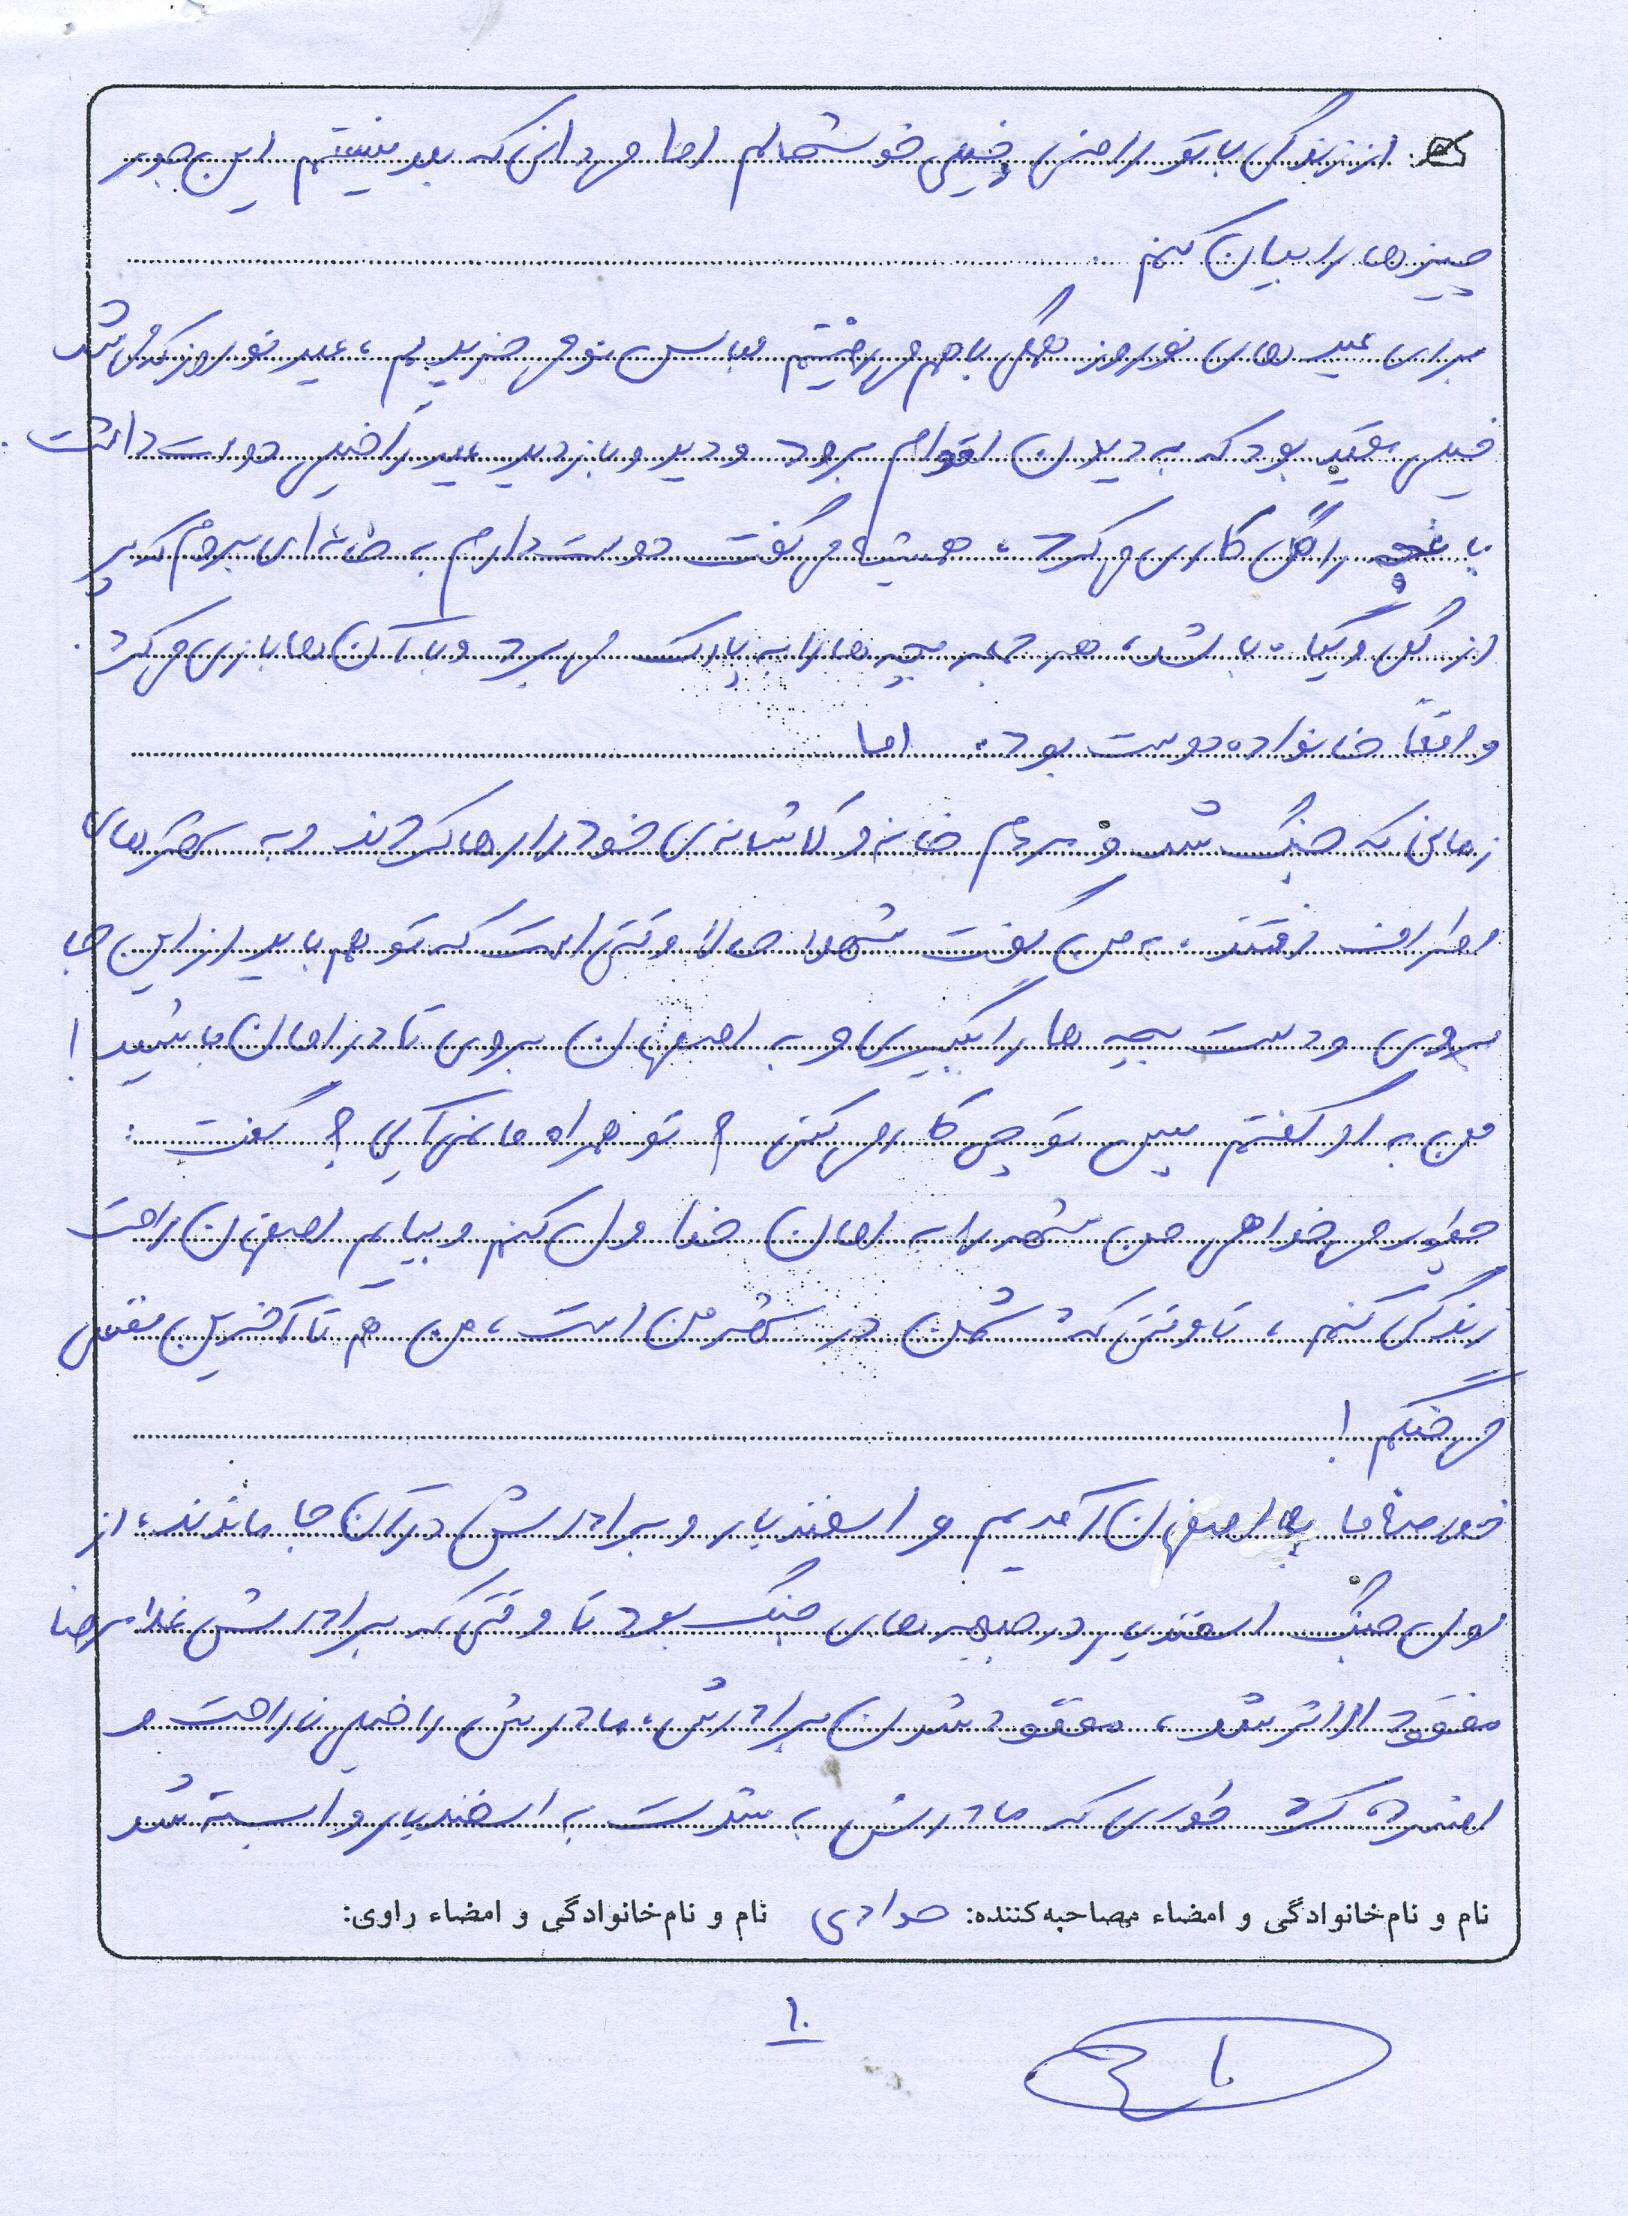 از زندگی با تو راضی خیلی خوشحالم اما می دانی که بلد نیستم این جور
چیزها را بیان کنم .
برای عید های نوروز همگی با هم می رفتیم لباس نو می خریدیم ، عید نوروز که می شد
خیلی مقید بود که به دیدن اقوام برود و دید و بازدید عید را خیلی دوست داشت .
باغچه را گل کاری می کرد ، همیشه می گفت دوست دارم به خانه ای بروم که پر
از گل و گیاه باشد ، هر جمعه بچه ها را به پارک می برد و با آن ها بازی می کرد .
واقعاً خانواده دوست بود . اما
زمانی که جنگ شد و مردم خانه و کاشانه ی خود را رها کردند و به شهرهای
اطراف رفتند ، به من گفت شهلا حالا وقتی است که تو هم باید از این جا
بروی و دست بچه ها را بگیری و به اصفهان بروی تا در امان باشید !
من به او گفتم پس تو چی کار می کنی ؟ تو همراه ما نمی آیی ؟ گفت :
چطور می خواهی من شهر را به امان خدا ول کنم و بیایم اصفهان راحت
زندگی کنم ، تا وقتی که دشمن در شهر من است ، من هم تا آخرین نفس
می جنگم !
خود ما به اصفهان آمدیم و اسفندیار و برادرش در آن جا ماندند ، از
اول جنگ اسفندیار در جبهه های جنگ بود تا وقتی که برادرش غلامرضا
مفقود الاثر شد ، مفقود شدن برادرش ، مادرش را خیلی ناراحت و
افسرده کرد طوری که مادرش به شدت به اسفندیار وابسته شد
نام و نام‌خانوادگی و امضاء مصاحبه‌کننده: جوادی نام و نام‌خانوادگی و امضاء راوی:
۱۰